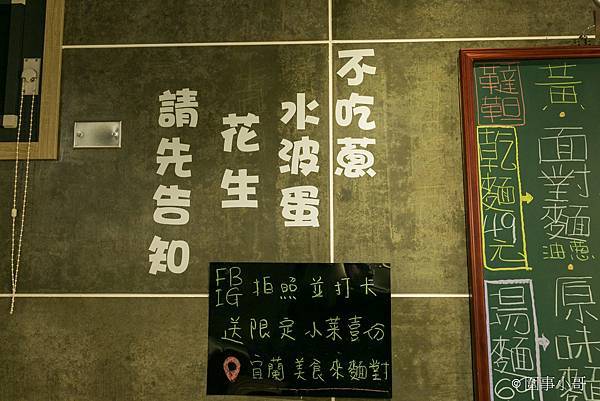 不吃蔥
水波蛋
花生
請先告知
FB
IG 拍照並打卡
送限定小菜壹份
宜蘭美食來麵對
黃
面對麵
油蔥
原味麵
乾麵49元
湯麵
@圍事小哥